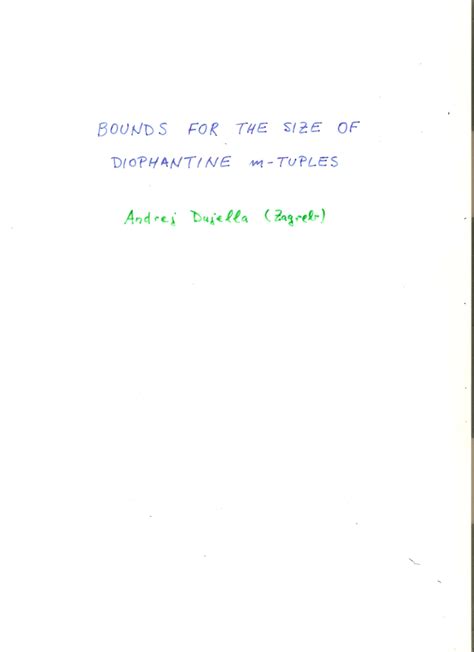 BOUNDS FOR THE SIZE OF
DIOPHANTINE m-TUPLES
Andrej Dujella (Zagreb)